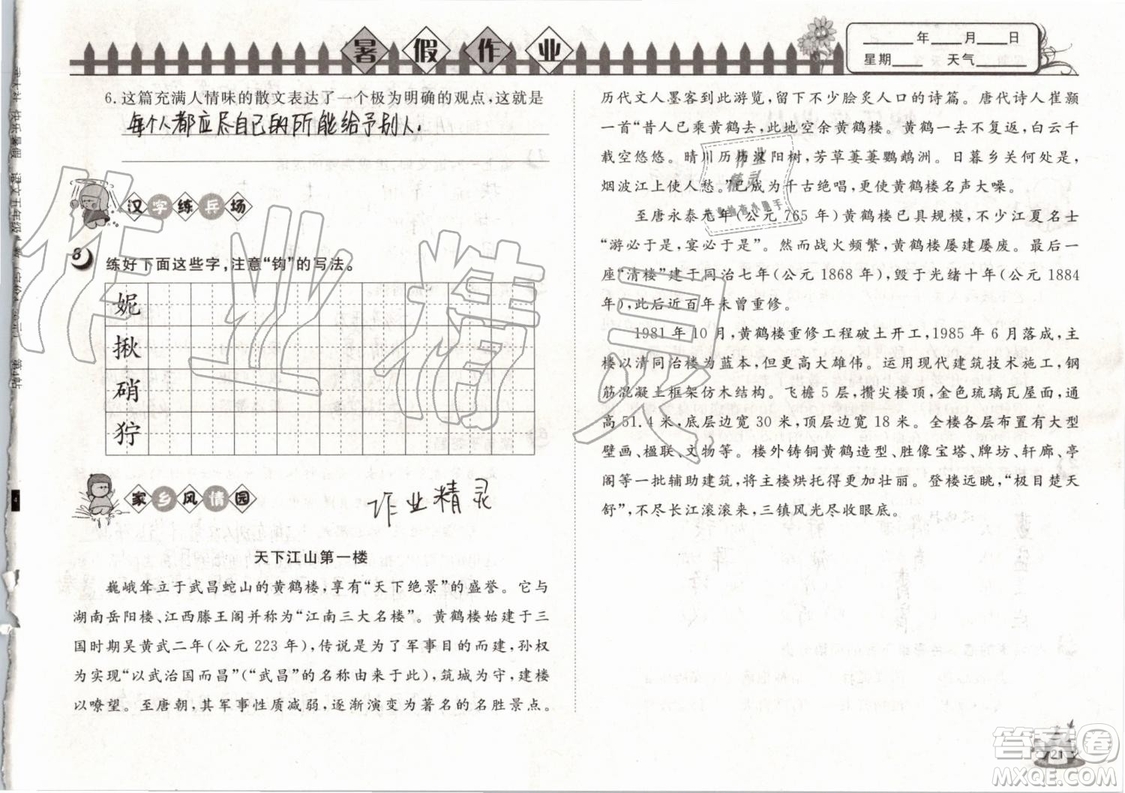 暑假作业
____年____月____日
星期____ 天气____
6. 这篇充满人情味的散文表达了一个极为明确的观点，这就是
每个人都应尽自己的所能给予别人.
汉字练兵场
8
练好下面这些字，注意“钩”的写法。
妮
揪
硝
狞
家乡风情园
作业精灵
天下江山第一楼
巍峨耸立于武昌蛇山的黄鹤楼，享有“天下绝景”的盛誉。它与
湖南岳阳楼、江西滕王阁并称为“江南三大名楼”。黄鹤楼始建于三
国时期吴黄武二年（公元 223 年），传说是为了军事目的而建，孙权
为实现“以武治国而昌”（“武昌”的名称由来于此），筑城为守，建楼
以嘹望。至唐朝，其军事性质减弱，逐渐演变为著名的名胜景点。
历代文人墨客到此游览，留下不少脍炙人口的诗篇。唐代诗人崔颢
一首“昔人已乘黄鹤去，此地空余黄鹤楼。黄鹤一去不复返，白云千
载空悠悠。晴川历历汉阳树，芳草萋萋鹦鹉洲。日暮乡关何处是，
烟波江上使人愁。”已成为千古绝唱，更使黄鹤楼名声大噪。
至唐永泰元年（公元 765 年）黄鹤楼已具规模，不少江夏名士
“游必于是，宴必于是”。然而战火频繁，黄鹤楼屡建屡废。最后一
座“清楼”建于同治七年（公元 1868 年），毁于光绪十年（公元 1884
年），此后近百年未曾重修。
1981 年 10 月，黄鹤楼重修工程破土开工，1985 年 6 月落成，主
楼以清同治楼为蓝本，但更高大雄伟。运用现代建筑技术施工，钢
筋混凝土框架仿木结构。飞檐 5 层，攒尖楼顶，金色琉璃瓦屋面，通
高 51.4 米，底层边宽 30 米，顶层边宽 18 米。全楼各层布置有大型
壁画、楹联、文物等。楼外铸铜黄鹤造型、胜像宝塔、牌坊、轩廊、亭
阁等一批辅助建筑，将主楼烘托得更加壮丽。登楼远眺，“极目楚天
舒”，不尽长江滚滚来，三镇风光尽收眼底。
作业精灵
作业
精灵
21
答案圈
MXQE.COM